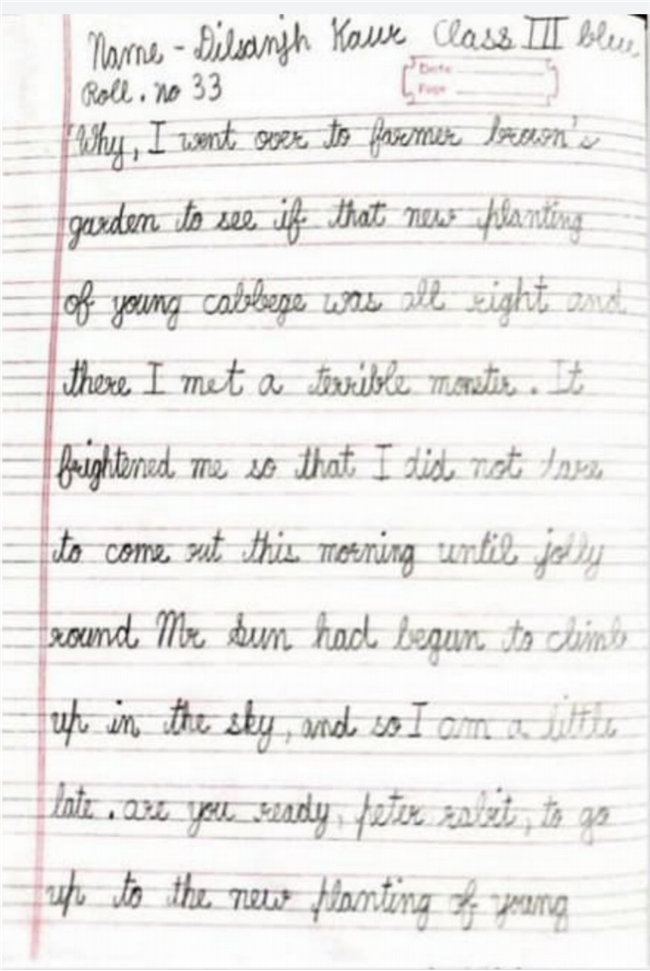 Name - Dilsanjh Kaur Class III blue
Roll. no 33
Date
Page
"Why, I went over to farmer brown's
garden to see if that new planting
of young cabbege was all right and
there I met a terrible monster. It
frightened me so that I did not dare
to come out this morning until jolly
round Mr Sun had begun to climb
up in the sky, and so I am a little
late. are you ready, peter rabit, to go
up to the new planting of young